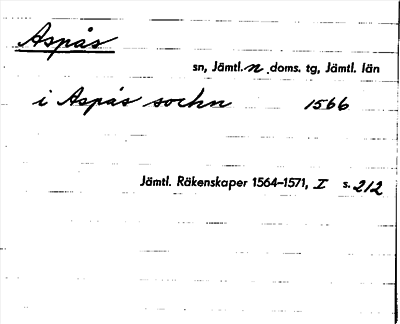 Aspås
sn, Jämtl. n. doms. tg, Jämtl. län
i Aspås sochn 1566
Jämtl. Räkenskaper 1564–1571, I s. 212